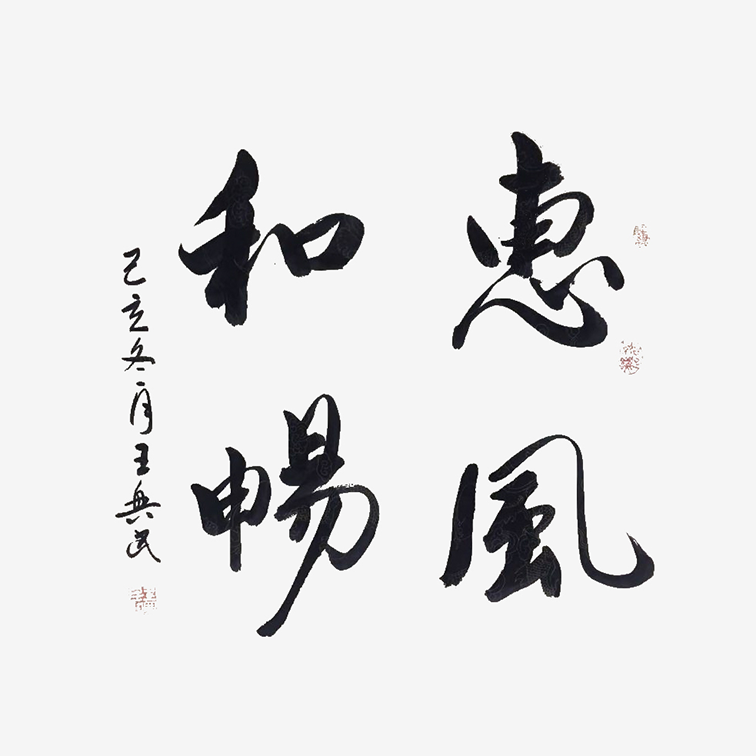 惠風
和暢
己亥冬月王兵民